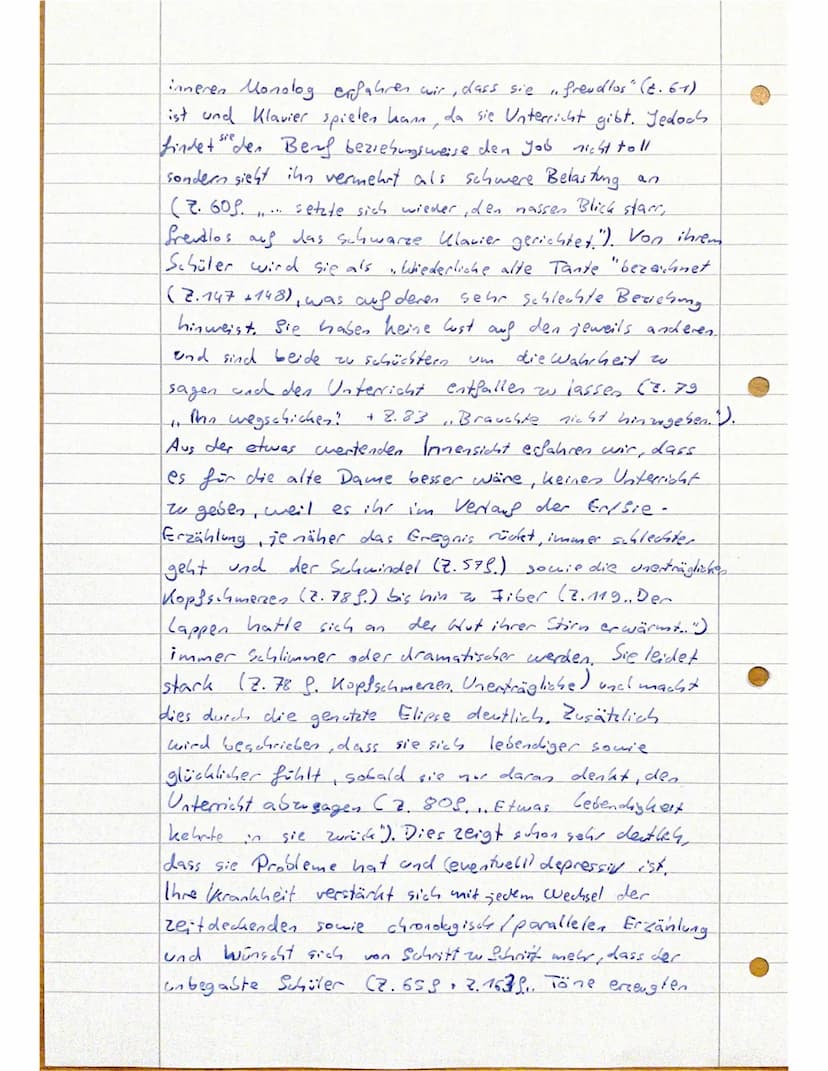 inneren Monolog erfahren wir, dass sie „freudlos" (Z. 61)
ist und Klavier spielen kann, da sie Unterricht gibt. Jedoch
findet sie den Beruf beziehungsweise den Job nicht toll
sondern sieht ihn vermehrt als schwere Belastung an
(Z. 60f. „... setzte sich wieder, den nassen Blick starr,
freudlos auf das schwarze Klavier gerichtet."). Von ihrem
Schüler wird sie als „Wiederliche alte Tante" bezeichnet
(Z. 147 + 148), was auf deren sehr schlechte Beziehung
hinweist. Sie haben keine Lust auf den jeweils anderen
und sind beide zu schüchtern um die Wahrheit zu
sagen und den Unterricht entfallen zu lassen (Z. 79
„Ihn wegschicken! + Z. 83 „Brauchte nicht hinzugehen.").
Aus der etwas wertenden Innensicht erfahren wir, dass
es für die alte Dame besser wäre, keinen Unterricht
zu geben, weil es ihr im Verlauf der Er/Sie-
Erzählung, je näher das Ereignis rückt, immer schlechter
geht und der Schwindel (Z. 57f.) sowie die unerträglichen
Kopfschmerzen (Z. 78f.) bis hin zu Fiber (Z. 119 „Der
Lappen hatte sich an der Glut ihrer Stirn erwärmt.")
immer schlimmer oder dramatischer werden. Sie leidet
stark (Z. 78 f. Kopfschmerzen. Unerträgliche) und macht
dies durch die genutzte Elipse deutlich. Zusätzlich
wird beschrieben, dass sie sich lebendiger sowie
glücklicher fühlt, sobald sie nur daran denkt, den
Unterricht abzusagen (Z. 80f. „Etwas Lebendigkeit
kehrte in sie zurück"). Dies zeigt schon sehr deutlich,
dass sie Probleme hat und (eventuell) depressiv ist.
Ihre Krankheit verstärkt sich mit jedem Wechsel der
zeitdeckenden sowie chronologisch/parallelen Erzählung
und wünscht sich von Schritt zu Schritt mehr, dass der
unbegabte Schüler (Z. 65f + Z. 163f „Töne erzeugten